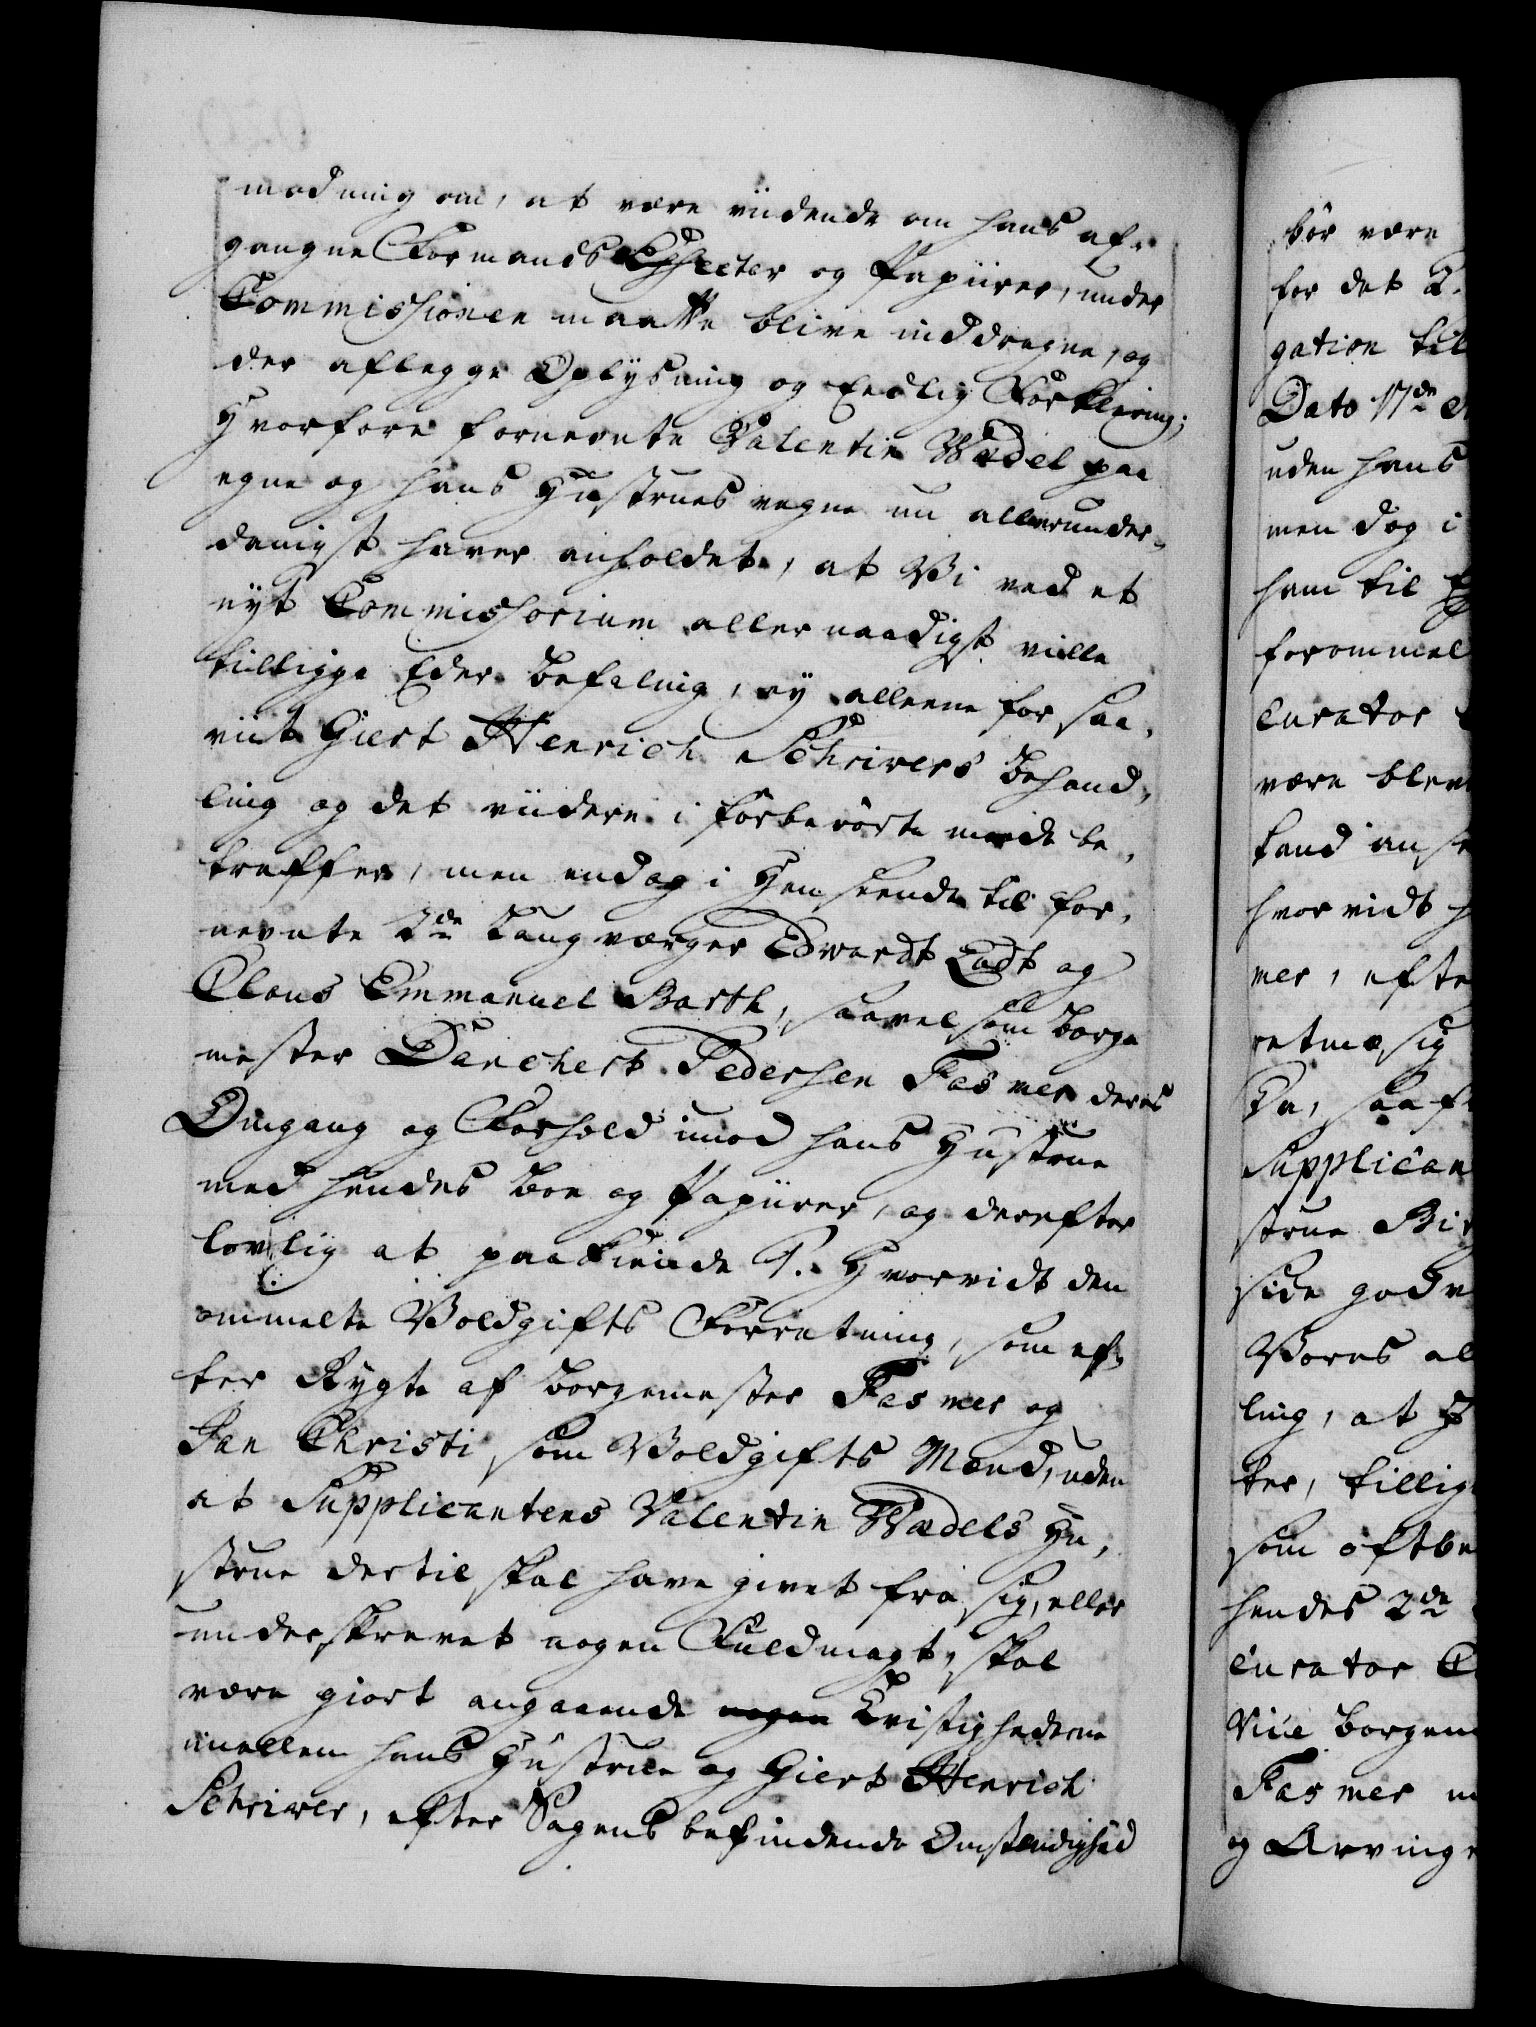 modning om, at være viidende om hans af-
gangne Formands Effecter og Papiirer, under
Commissionen maatte blive inddragne, og
der aflegge Oplysning og Eedlig Forklaring;
Hvorfore fornevnte Valentin Wedel paa
egne og hans Hustrues vegne nu allerunder-
danigst haver anholdet, at Vi ved et
nyt Commissorium allernaadigst ville
tillegge Eder Befaling, ey alleene for saa-
viit Giert Henrich Schrivers Behand-
ling og det viidere i forberørte maade be-
treffer, men endog i Henseende til for-
nevnte 2de Laugværger Edvardt Eadt og
Claus Emmanuel Barth, saavelsom Borge-
mester Danchert Pedersen Fasmer deres
Omgang og Forhold imod hans Hustrue
med hendes Boe og Papiirer, og derefter
lovlig at paakiende 1. Hvorvidt den
ommelte Voldgifts Forretning, som ef-
ter Rygte af Borgemester Fasmer og
Jan Christi, som Voldgifts Mænd, uden
at Supplicantens Valentin Wedels Hu-
strue dertil skal have givet fra sig, eller
underskrevet nogen Fuldmagt, skal
være giort angaaende nogen Tvistighederne
imellem hans Hustrue og Giert Henrich
Schriver, efter Sagens befindende Omstændighed
bør være
for det 2.
gation til
Dato 17de
uden hans
men dog i
ham til
forommel
Curator
være blev
tand anse
hvorvidt
mer, efte
retmæsig
Da, saaf
Supplican
strue Bir
side god
Vores al
ling, at
ter, tillig
som oftbe
hendes 2de
Curator
Vice Borgem
Fasmer
og Arving